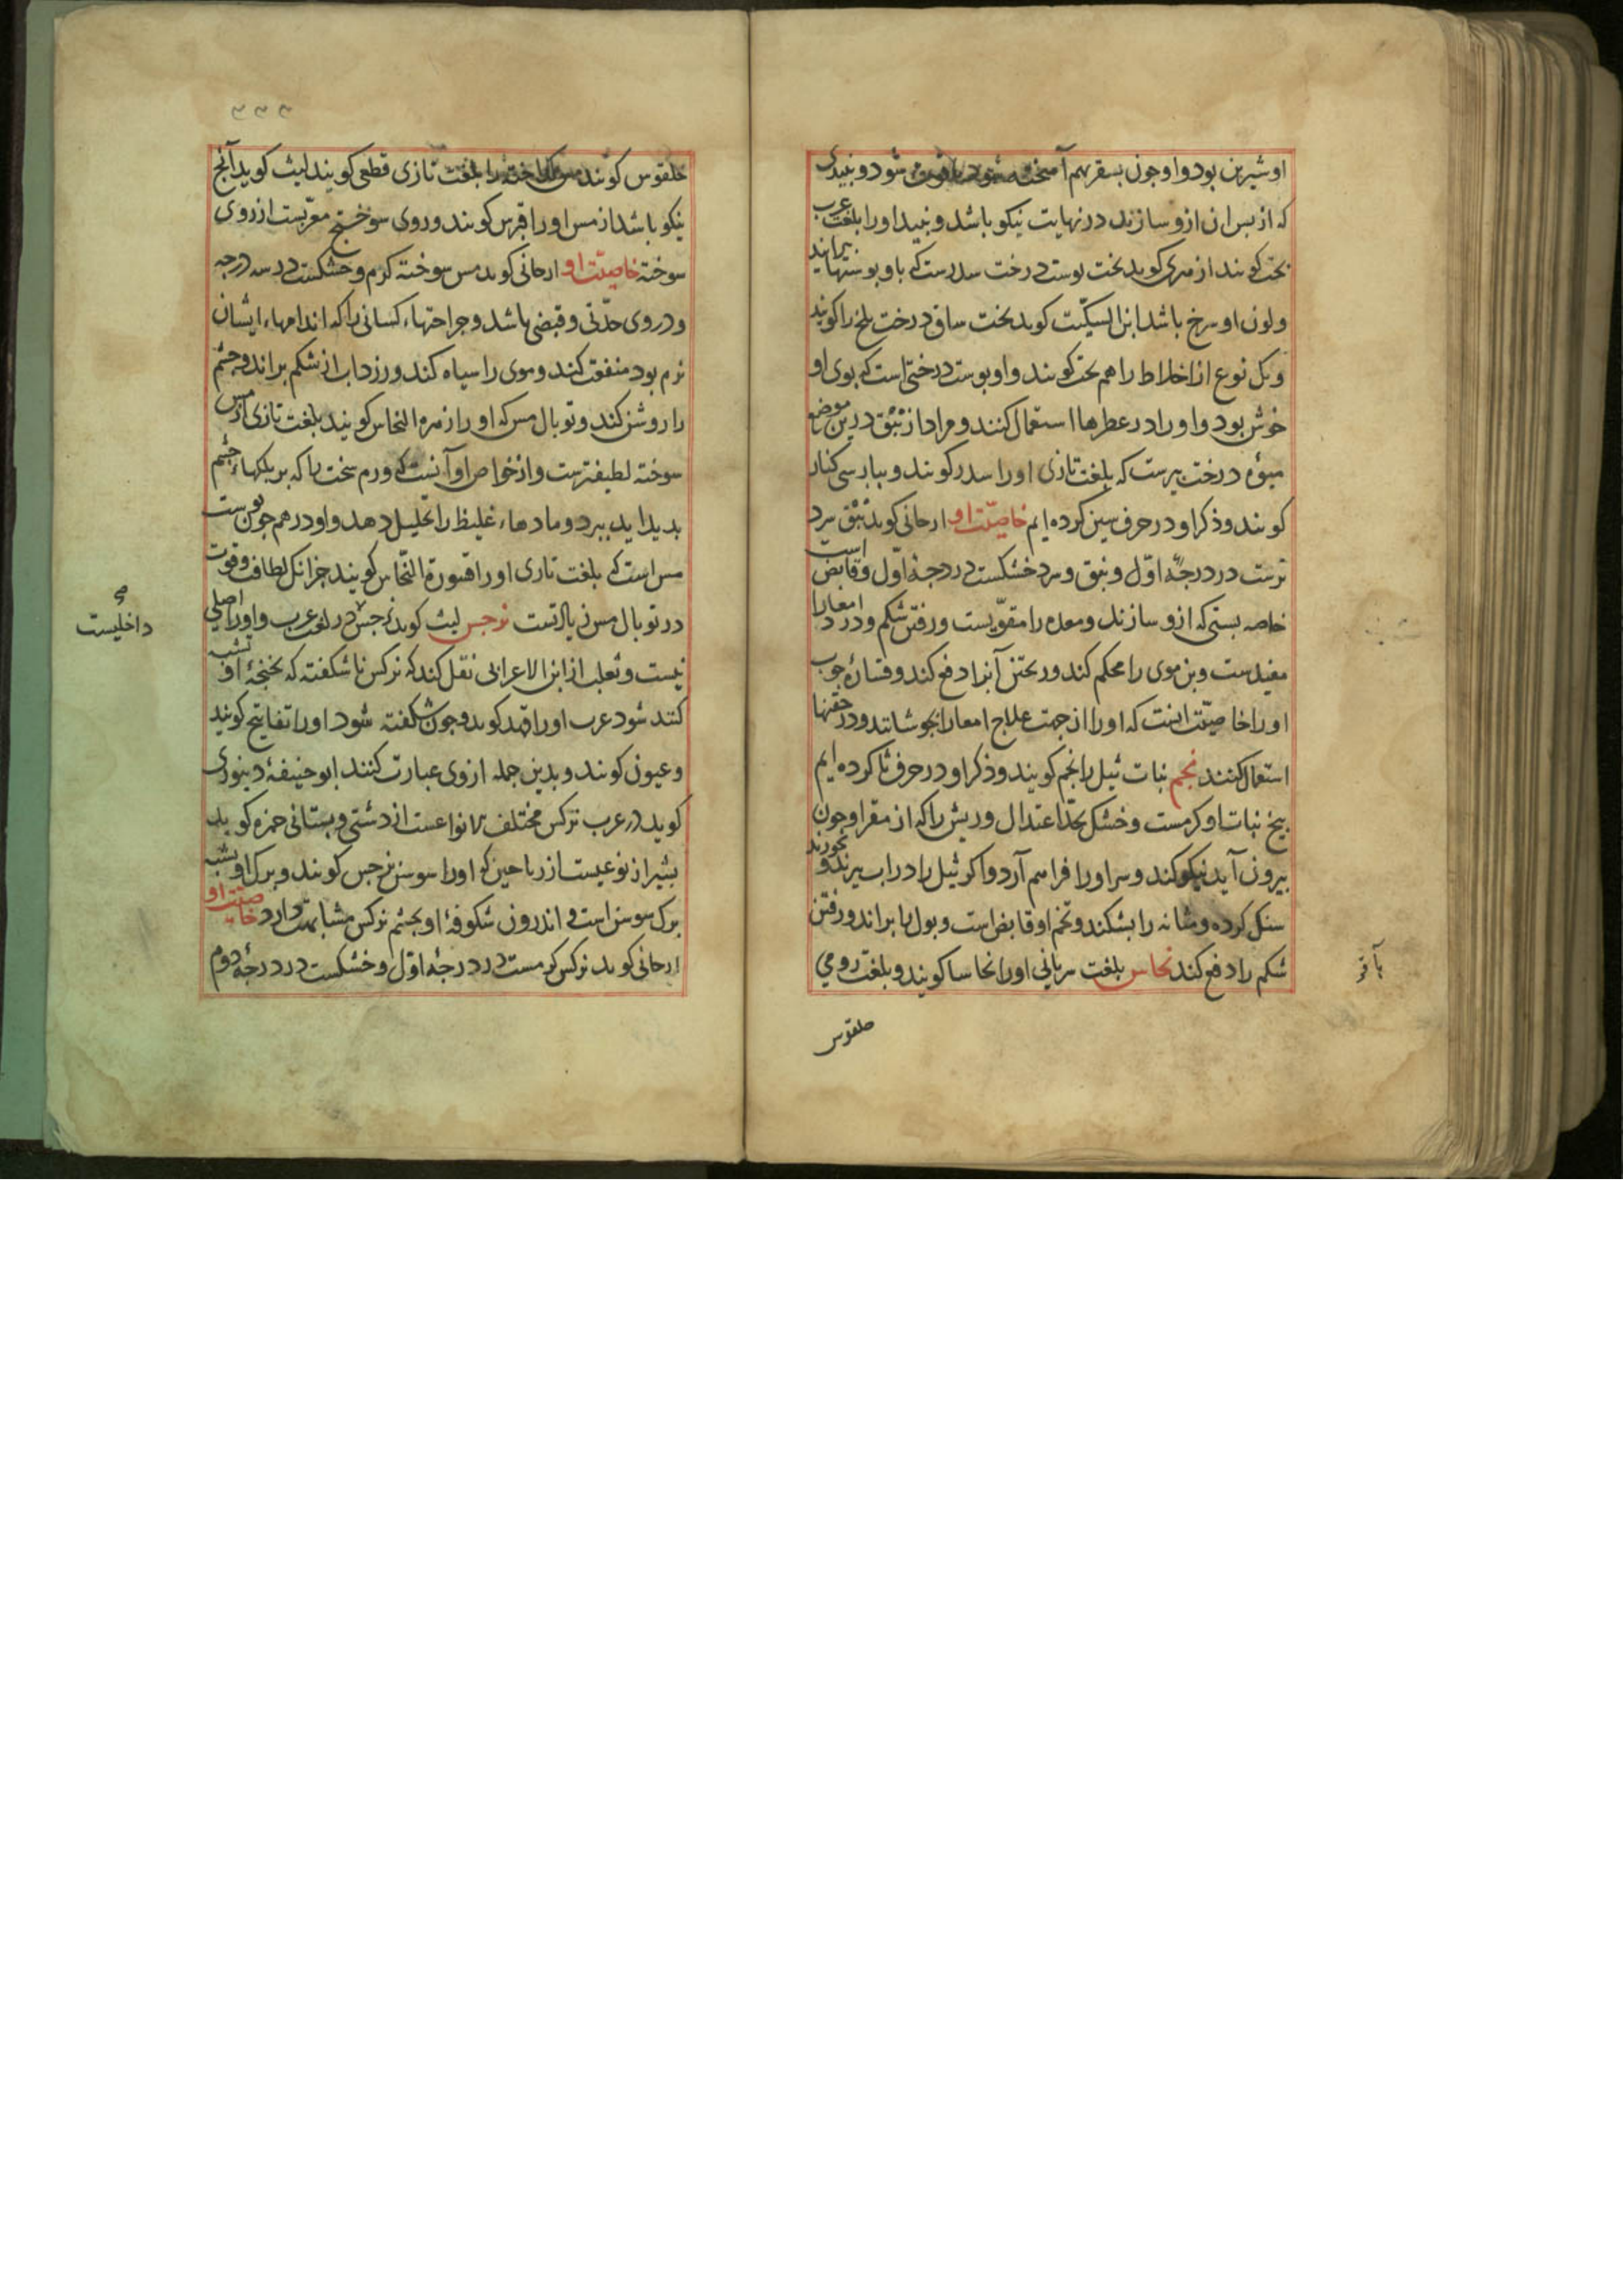 او شیرین بود و او چون بسفر هم آمیخته شود شود و نبیدی
که از بس ان ازو سازند در نهایت نیکو باشد و نبید او را بلغت عرب
نخت کویند ازهری کوید نخت بوست درخت سدرست که باو بوستها بیرایند
ولون او سرخ باشد ابن السکیّت کوید نخت ساق درخت تلخ را کویند
و یک نوع از اخلاط را هم نخت کویند و او بوست درختی است که بوی او
خوش بود و او را در عطرها استعمال کنند و مراد از نبق درین موضع
میوه درخت بیرست که بلغت تازی او را سدر کویند و ببارسی کنار
کویند و ذکر او در حرف سین کرده ایم خاصیّت او ارجانی کوید نبق سرد
ترست در درجه اوّل و نبق و سرد خشکست در درجهٔ اوّل و قابض است
خاصه بستی که ازو سازند و معده را مقوّیست و رفتن شکم و درد امعا را
مفیدست و بن موی را محکم کند و ریختن آنرا دفع کند و فشارهٔ جوب
او را خاصیّت اینست که او را از جهت علاج امعا را بجوشانند و در حقنها
استعمال کنند نجم نبات ثیل را نجم کویند و ذکر او در حرف ثا کرده ایم
بیخ نبات او کرمست و خشک بحدّ اعتدال و ریش را که از مقر او جون
بیرون آید نیکو کند و سر او را فراهم آرد و اکر ثیل را در اب بیزند و بخورند
سنک کرده و مثانه را بشکند و تخم او قابض است و بول را براند و رفتن
شکم را دفع کند نحاس بلغت سریانی او را نحاسا کویند و بلغت رومی
خلقوس
خلقوس کویند مس کداخته را بلغت تازی قطعی کویند لیث کوید آنچ
نیکو باشد از مس او را قبرس کویند و روی سوختج معرّبست از روی
سوخته خاصیّت او ارجانی کوید مس سوخته کرم و خشکست در سه درجه
و در وی حدّتی و قبضی باشد و جراحتهاء کسانی را که اندامهاء ایشان
نرم بود منفعت کند و موی را سیاه کند و زرداب از شکم براند و چشم
را روشن کند و توبال مس که او را زهرة النحاس کویند بلغت تازی از مس
سوخته لطیفترست و از خواص او آنست که ورم سخت را که بر بلکهاء چشم
بدید اید ببرد و مادهاء غلیظ را تحلیل دهد و او در هم جو قوت
مس است که بلغت تازی او را قشورة النحّاس کویند جز انک لطافت و قوت
در توبال مس زیادتست نرجس لیث کوید نرجس در لغت عرب و او را اصلی
نیست و ثعلب از ابن الاعرابی نقل کند که نرکس ناشکفته که بغنجهٔ او تشبیه
کنند شود عرب او را قهد کوید و جون شکفته شود او را تفاتیح کویند
و عیون کویند و بدین جمله از وی عبارت کنند ابو حنیفهٔ دینوری
کوید در عرب نرکس مختلف الانواعست از دشتی و بستانی حمزه کوید
بشیراز نوعیست از ریاحین که او را سوسن نرجس کویند و برک او بشبه
برک سوسن است و اندرون شکوفهٔ او بجشم نرکس مشابهت دارد خاصیّت او
ارجانی کوید نرکس کرمست در درجهٔ اوّل و خشکست در درجهٔ دوم
داخلیست